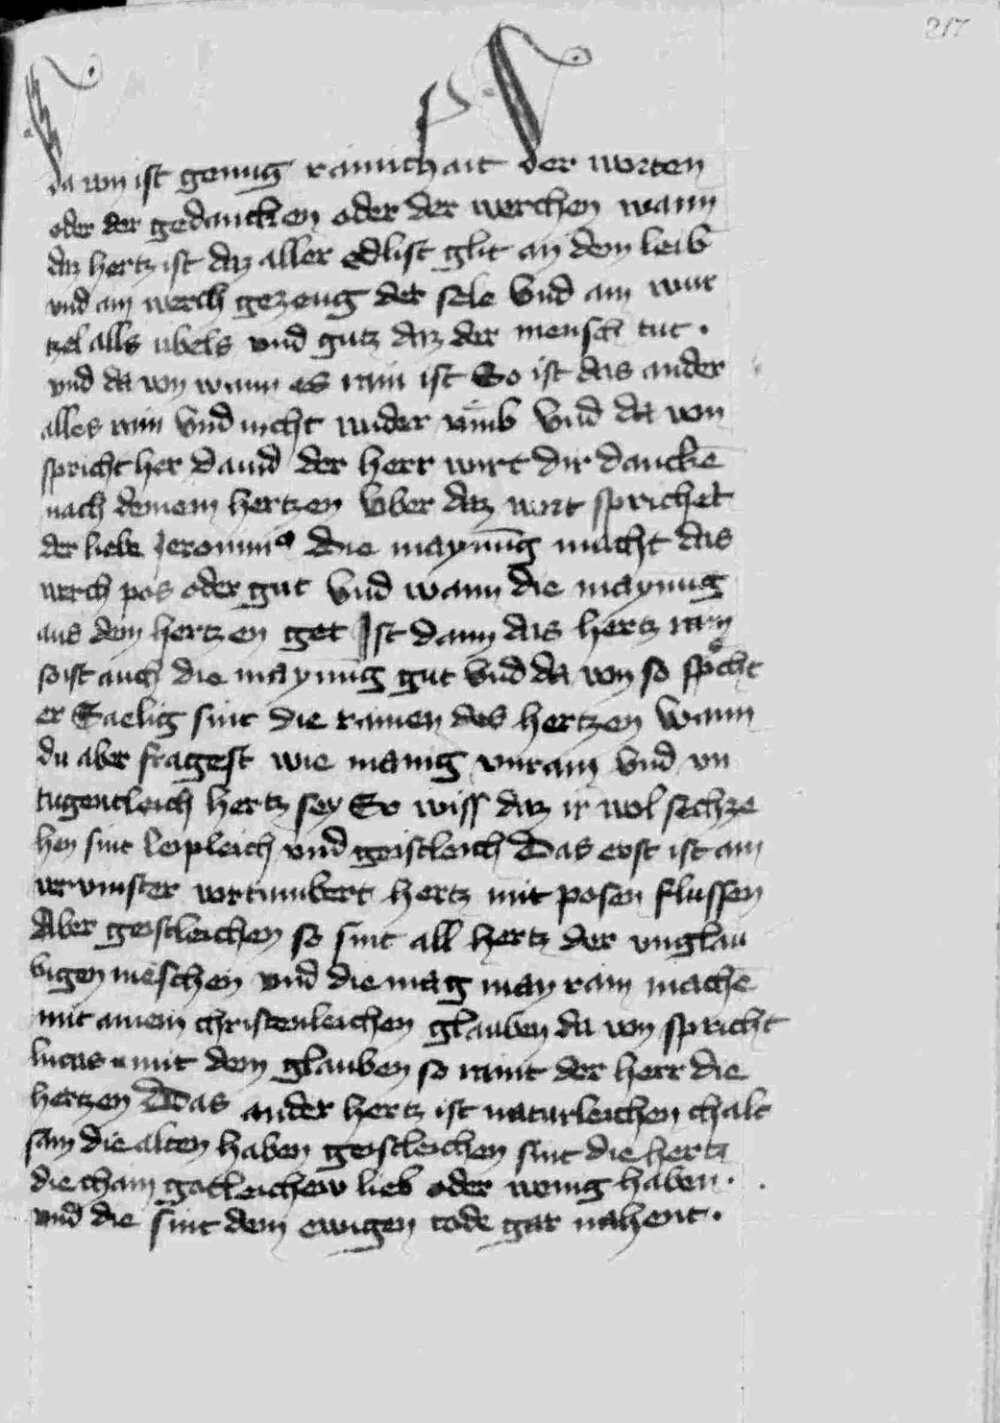 217
da von ist genug rainichait der worten
oder der gedancken oder der werchen wann
daz hertz ist daz aller edlist glit an dem leib
vnd ain werch gezeug der sele Vnd ain wur
tzel alls ubels vnd gutz daz der mensch tut.
vnd da von wann es rain ist So ist das ander
alles rain Vnd nicht wider vmb Vnd da von
spricht her dauid der herr wirt dir danckē
nach deinem hertzen Vber daz wort sprichet
der liebe Jeronimꝰ die maynūg macht das
werch pos oder gut Vnd wann die maynug
aus dem hertzen get Ist dann das hertz rain
so ist auch die maynūg gut Vnd da von so spͤcht
er Saelig sint die rainen des hertzen Wann
du aber fragest wie manig vnrain Vnd vn
tugentleich hertz sey So wiss daz ir wol sechze
hen sint leipleich vnd geistleich Das erst ist ain
hertz mit posen flussen
Aber geistleichen so sint all hertz der vnglau
bigen mēschen vnd die mag man rain machē
mit ainem christenleichen glauben da von spricht
lucas mit dem glauben so raint der herr die
hertzen Das ander hertz ist naturleichen chalt
sam die alten haben geistleichen sint die hertz
die chain gotleichew lieb oder wenig haben.
vnd die sint dem ewigen tode gar nahent.